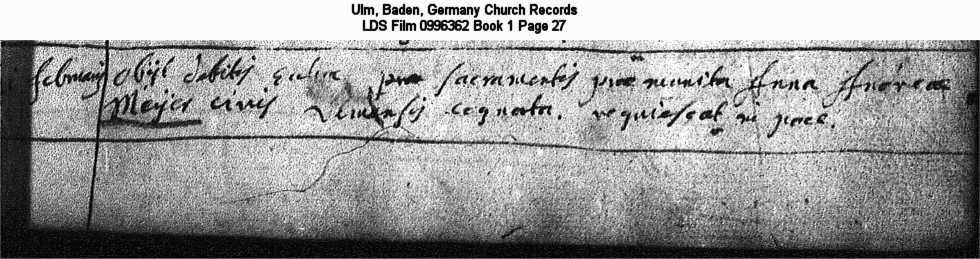 Ulm, Baden, Germany Church Records
LDS Film 0996362 Book 1 Page 27
februarij obijt debitis sacramentis præmunita Anna Andreæ
Meyer civis Ulmensis cognata. requiescat in pace.